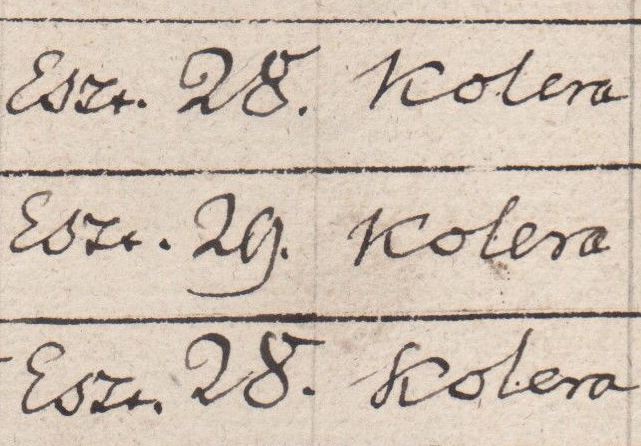 Eszt. 28. Kolera
Eszt. 29. Kolera
Eszt. 28. Kolera